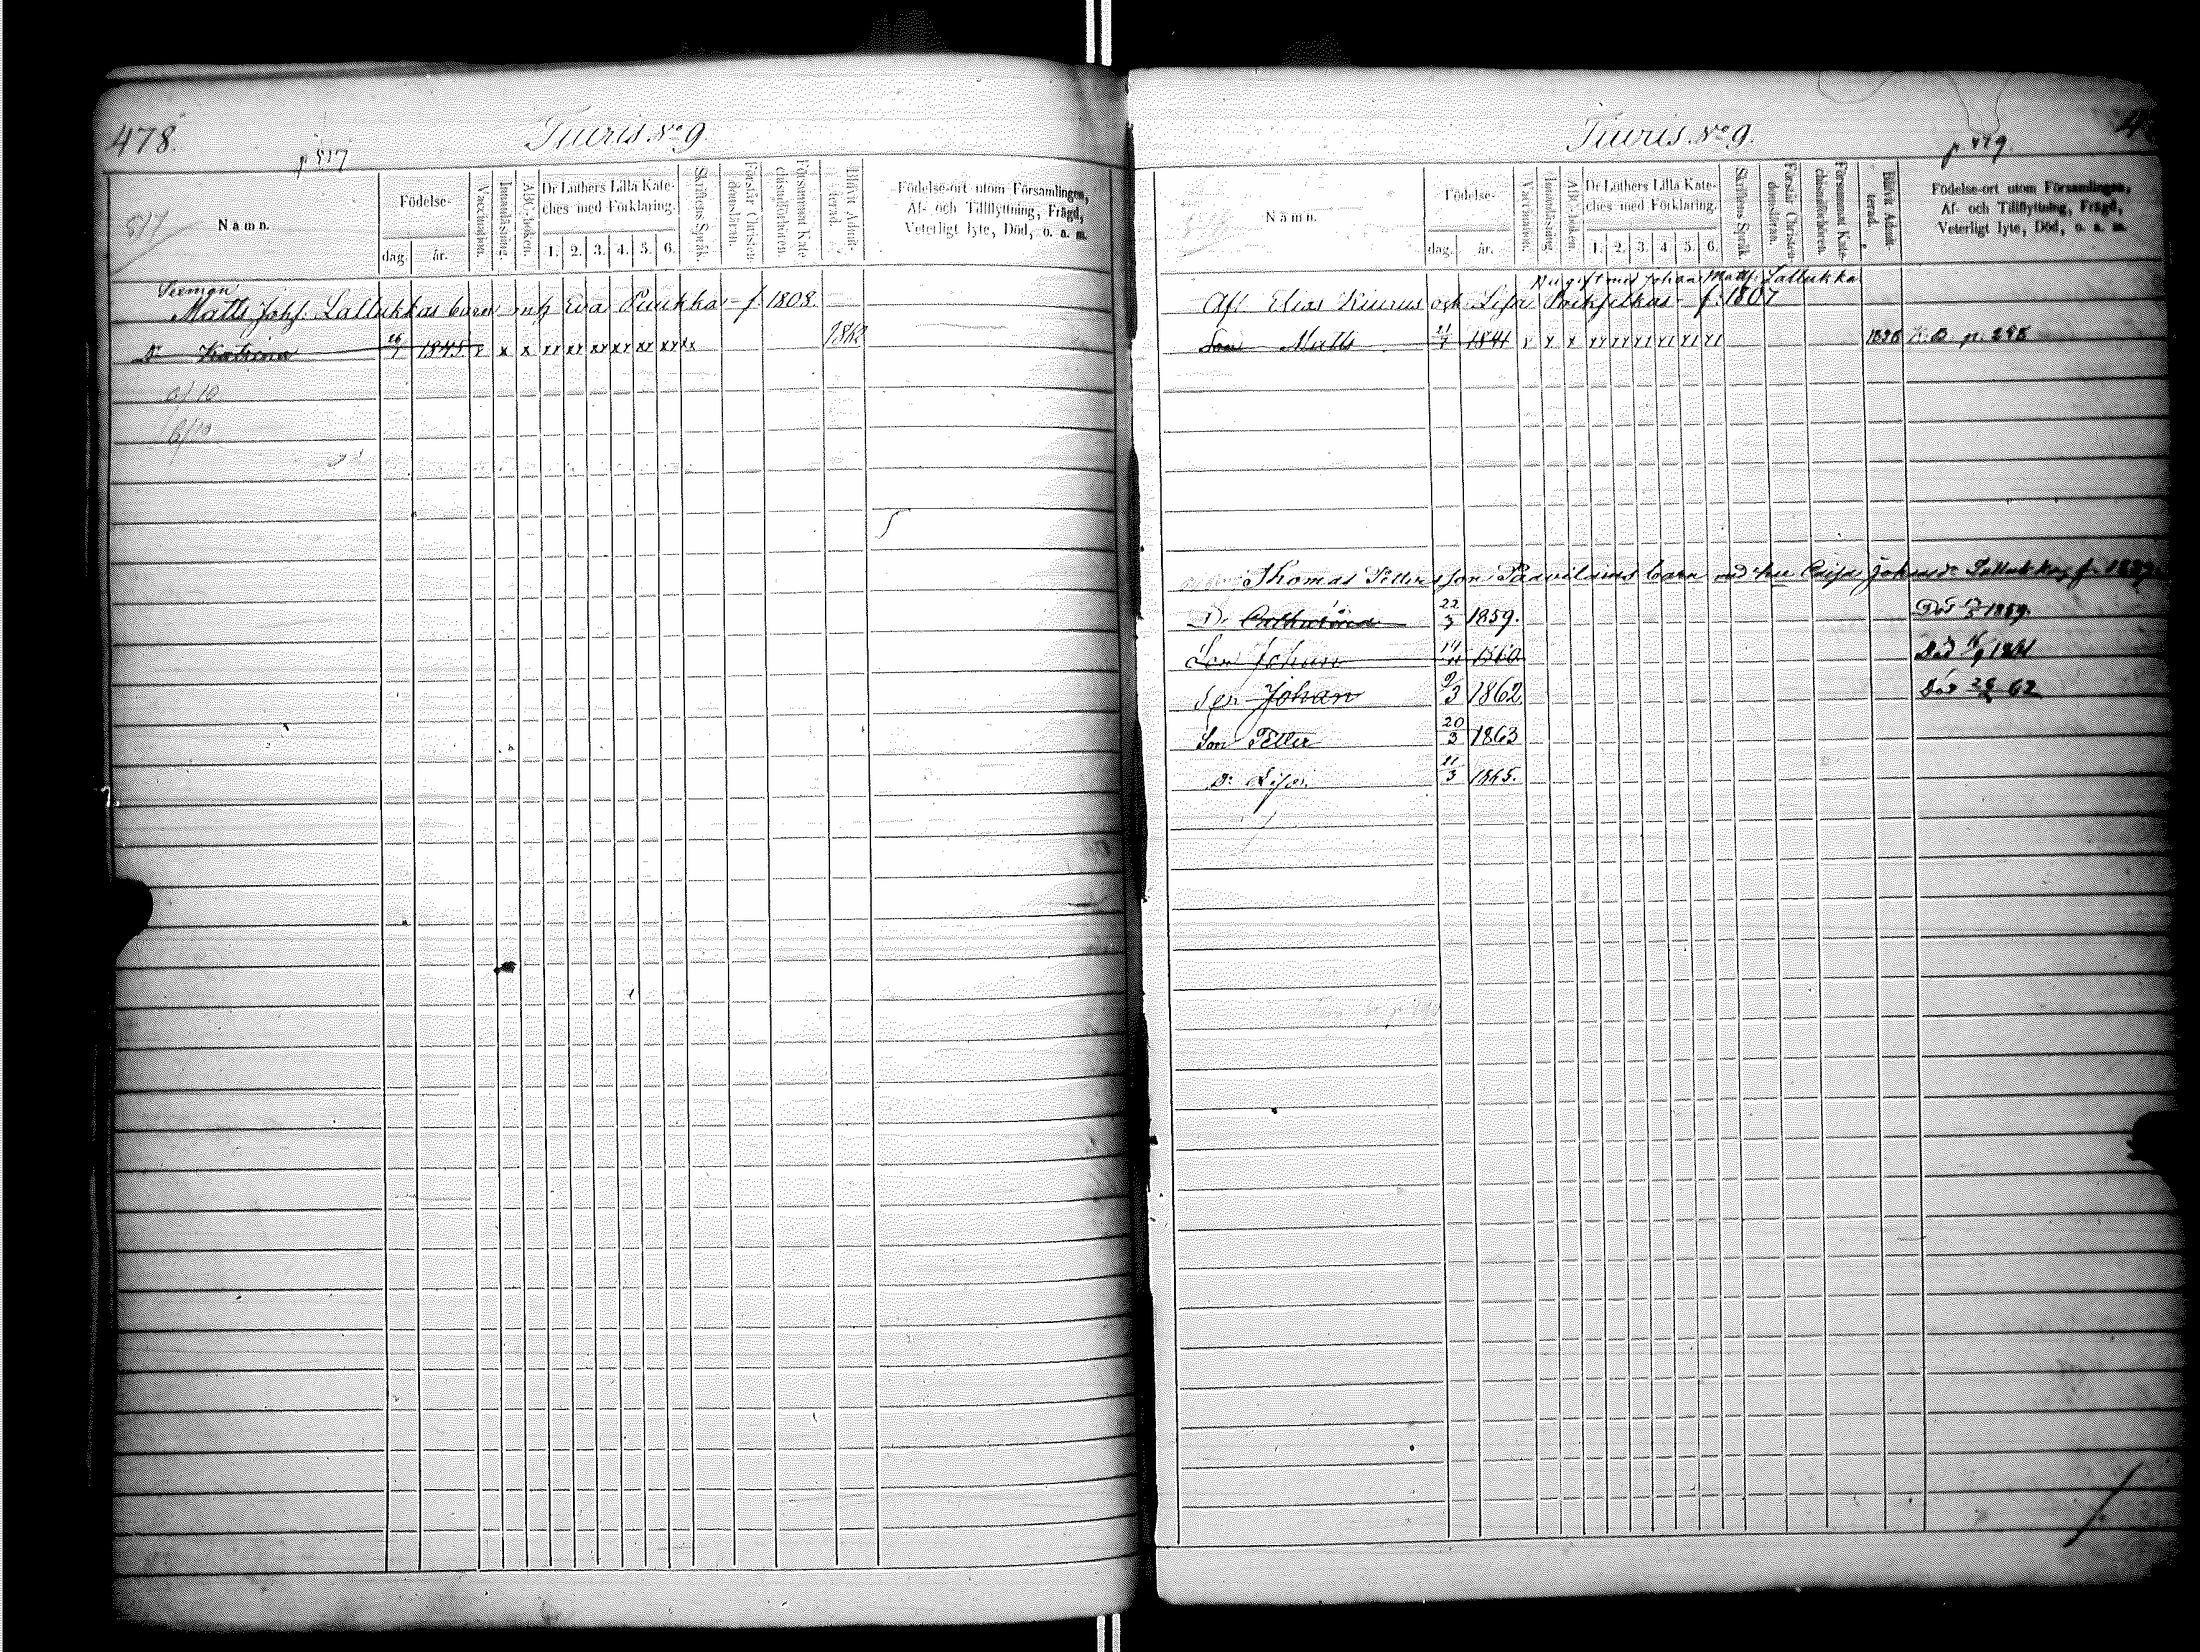 478.
Tiuris No 9.
p 517
517
Namn.
Födelse-
dag.
år.
Vaccination.
Innanläsning.
ABC-boken.
Dr Luthers Lilla Kate-
ches med Förklaring.
1. 2. 3. 4. 5. 6.
Skriftens Språk.
Förstår Christen-
domsläran.
Försummat Kate-
chismiförhören.
Blifvit Admit-
terad.
Födelse-ort utom Församlingen,
Af- och Tillflyttning, Frägd,
Veterligt lyte, Död, o. a. m.
Matts Johs. Lallukkas barn Eva Puukka f. 1808.
Dr Katrina 26 1845 x x x xx xx xx xx xx xx xx 1862
Tiuris No 9.
Namn.
Födelse-
dag.
år.
Vaccination.
Innanläsning.
ABC-boken.
Dr Luthers Lilla Kate-
ches med Förklaring.
1. 2. 3. 4. 5. 6.
Skriftens Språk.
Förstår Christen-
domsläran.
Försummat Kate-
chismiförhören.
Blifvit Admit-
terad.
Födelse-ort utom Församlingen,
Af- och Tillflyttning, Frägd,
Veterligt lyte, Död, o. a. m.
Nu gift med Johan Matts. Lallukka
Afl. Elias Kiurus och Lisa f. 1807
Son Matts 1841 x x x xx xx xx xx xx xx p. 298
Thomas Pettersson Paavilains barn Caisa Johansdr Lallukka f.
Dr Catharina 22/3 1859. Död 1859.
Son Johan 1860 Död 1861
Son Johan 9/3 1862. Död 62
Son Petter 20/3 1863
Dr Lisa. 11/3 1865.